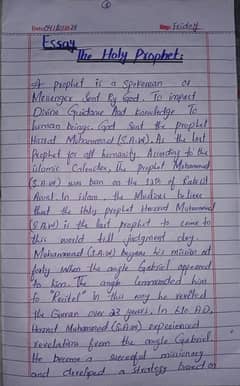 Friday
Essay
The Holy Prophet:
A prophet is a spokesman or
Messenger Sent By God. To impart
Divine Guidance And knowledge To
human beings. God Sent the prophet
Hazrat Muhammad (S.A.W). As the last
Prophet for all humanity. According to the
islamic Calender, The prophet Muhammad
(S.A.W) was born on the 12th of Rabi ul
Awal. In islam, the Muslims believe
that the Holy prophet Hazrat Muhammad
(S.A.W) is the last prophet to come to
this world till judgment day.
Muhammad (S.A.W) began his mission at
forty when the angle Gabriel appeared
to him. The angle commanded him
to "Recite!" In this way he recited
the Quran over 23 years. In 610 A.D,
Hazrat Muhammad (S.A.W) experienced
revelation from the angle Gabriel.
He became a successful missionary
and developed a strategy based on